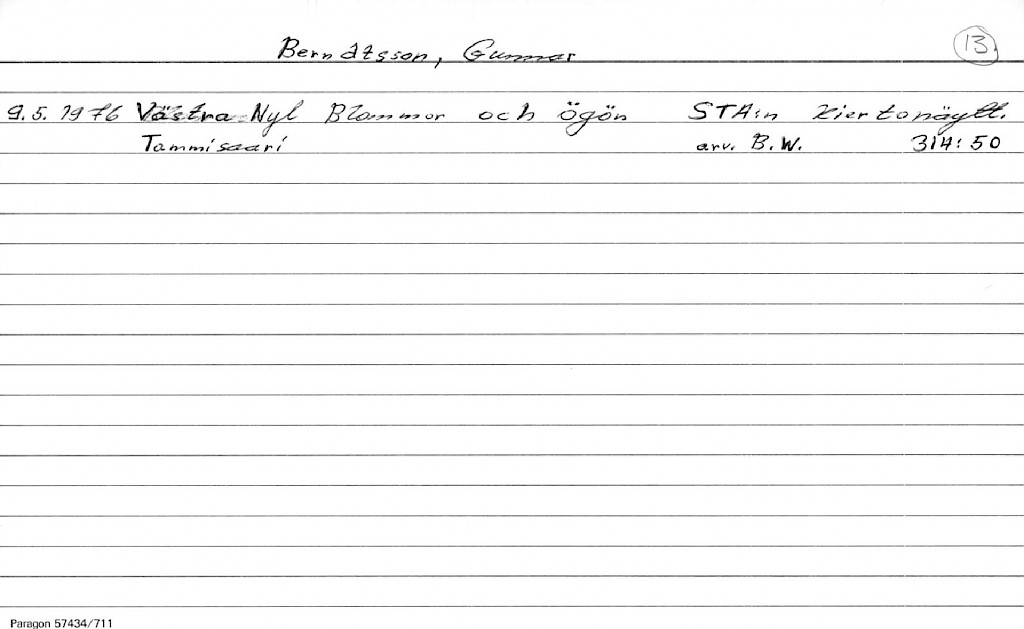 Berndtsson, Gunnar
13.
9.5.1976 Västra Nyl Blommor och ögön STA:n kiertonäytt.
Tammisaari arv. B.W. 314:50
Paragon 57434/711